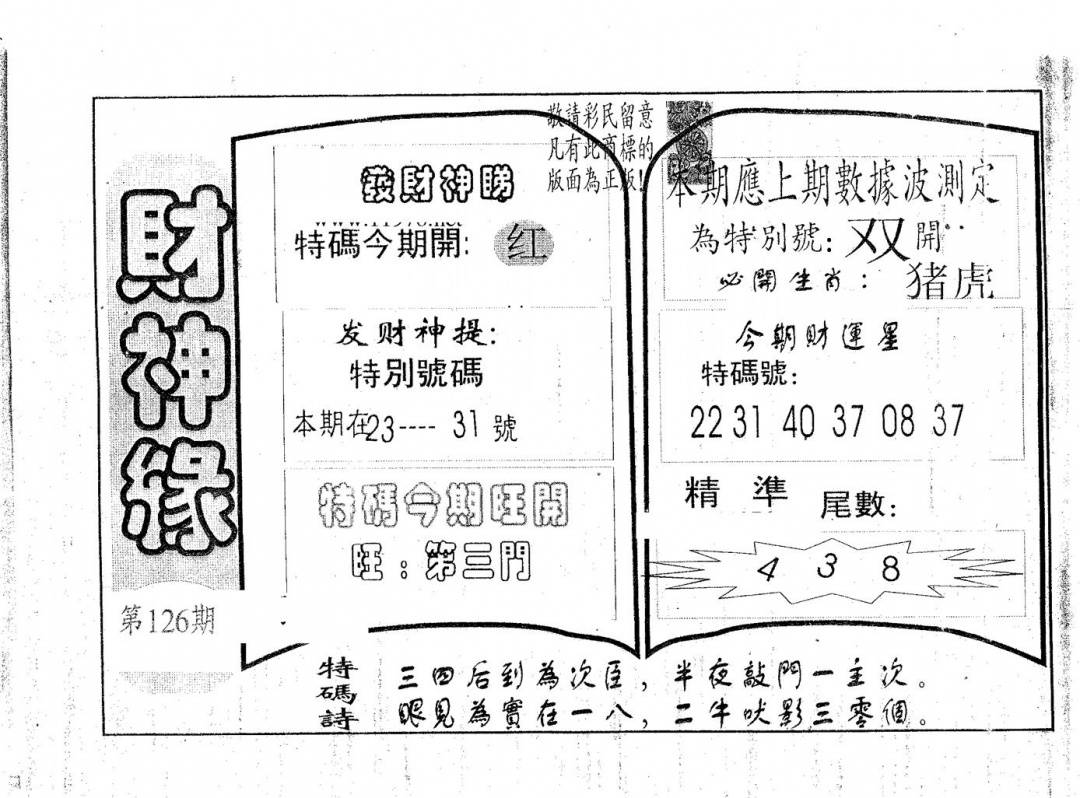 財神緣
第126期
敬請彩民留意
凡有此商標的
版面為正版!
發財神睇
特碼今期開: 红
发财神提:
特別號碼
本期在23----31號
特碼今期旺開
旺:第三門
本期應上期數據波測定
為特別號: 双開
必開生肖: 猪虎
今期財運星
特碼號:
22 31 40 37 08 37
精準 尾數:
4 3 8
特碼詩
三四后到為次臣，半夜敲門一主次。
眼見為實在一八，二牛吠影三零個。